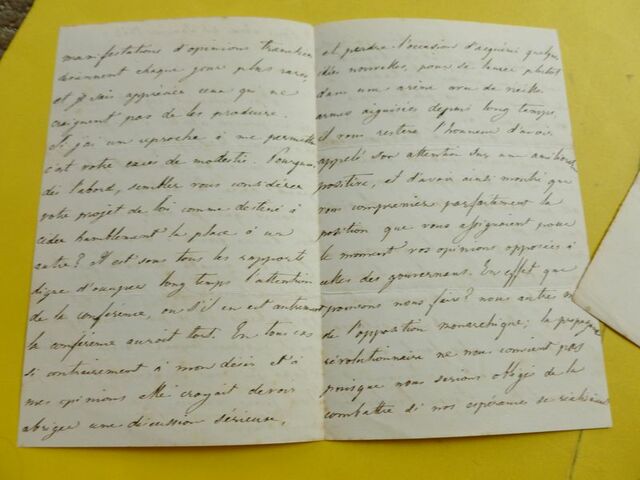 manifestations d'opinions tranchées
deviennent chaque jour plus rares,
et je sais apprécier ceux qui ne
craignent pas de les produire.
Si j'ai un reproche à me permettre
c'est votre excès de modestie. Pourquoi,
dès l'abord, sembler vous considérer
votre projet de loi comme destiné à
céder humblement la place à un
autre? Il est sous tous les rapports
digne d'occuper long temps l'attention
de la conférence, ou s'il en est autrement
la conférence aurait tort. En tous cas
si contrairement à mon désir et à
mes opinions elle croyait devoir
abréger une discussion sérieuse,
et perdre l'occasion d'acquérir quelques
idées nouvelles, pour se lancer plutôt
dans une arène avec de vieilles
armes aiguisées depuis long temps,
il vous restera l'honneur d'avoir
appelé son attention sur une amélioration
positive, et d'avoir ainsi montré que
vous compreniez parfaitement la
position que vous assignaient pour
le moment vos opinions opposées à
celles des gouvernans. En effet que
pouvons nous faire? nous autres
de l'opposition monarchique; la propagande
révolutionnaire ne nous convient pas
puisque nous serions obligés de la
combattre si nos espérances se réalisaient